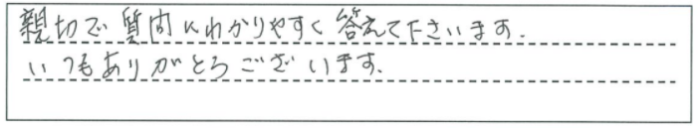 親切で質問にわかりやすく答えて下さいます.
いつもありがとうございます.